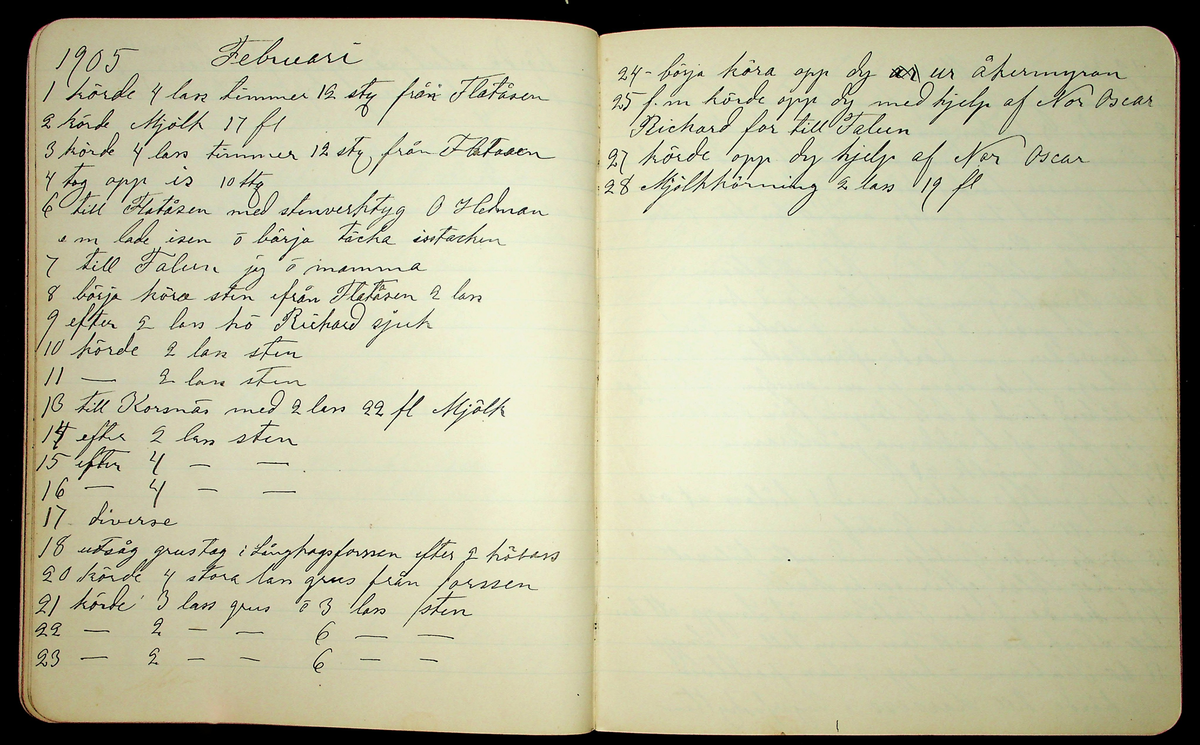 1905 Februari
1 körde 4 lass timmer 12 sty från Flatåsen
2 körde Mjölk 17 fl
3 körde 4 lass timmer 12 sty från Flatåsen
4 tog opp is 10 sty
6 till Flatåsen med stenverktyg O Hedman
e m lade isen o börja täcka isstacken
7 till Falun jag o mamma
8 börja köra sten från Flatåsen 2 lass
9 efter 2 lass hö Richard sjuk
10 körde 2 lass sten
11 — 2 lass sten
13 till Korsnäs med 2 lass 22 fl Mjölk
14 efter 2 lass sten
15 efter 4 — —
16 — 4 — —
17 diverse
18 utsåg grustag i Långhagsforssen efter 2 hölass
20 körde 4 stora lass grus från forssen
21 körde 3 lass grus o 3 lass sten
22 — 2 — — 6 — —
23 — 2 — — 6 — —
24 - börja köra opp dy ur åkermyran
25 f.m körde opp dy med hjelp af Nor Oscar
Richard for till Falun
27 körde opp dy hjelp af Nor Oscar
28 Mjölkkörning 2 lass 19 fl